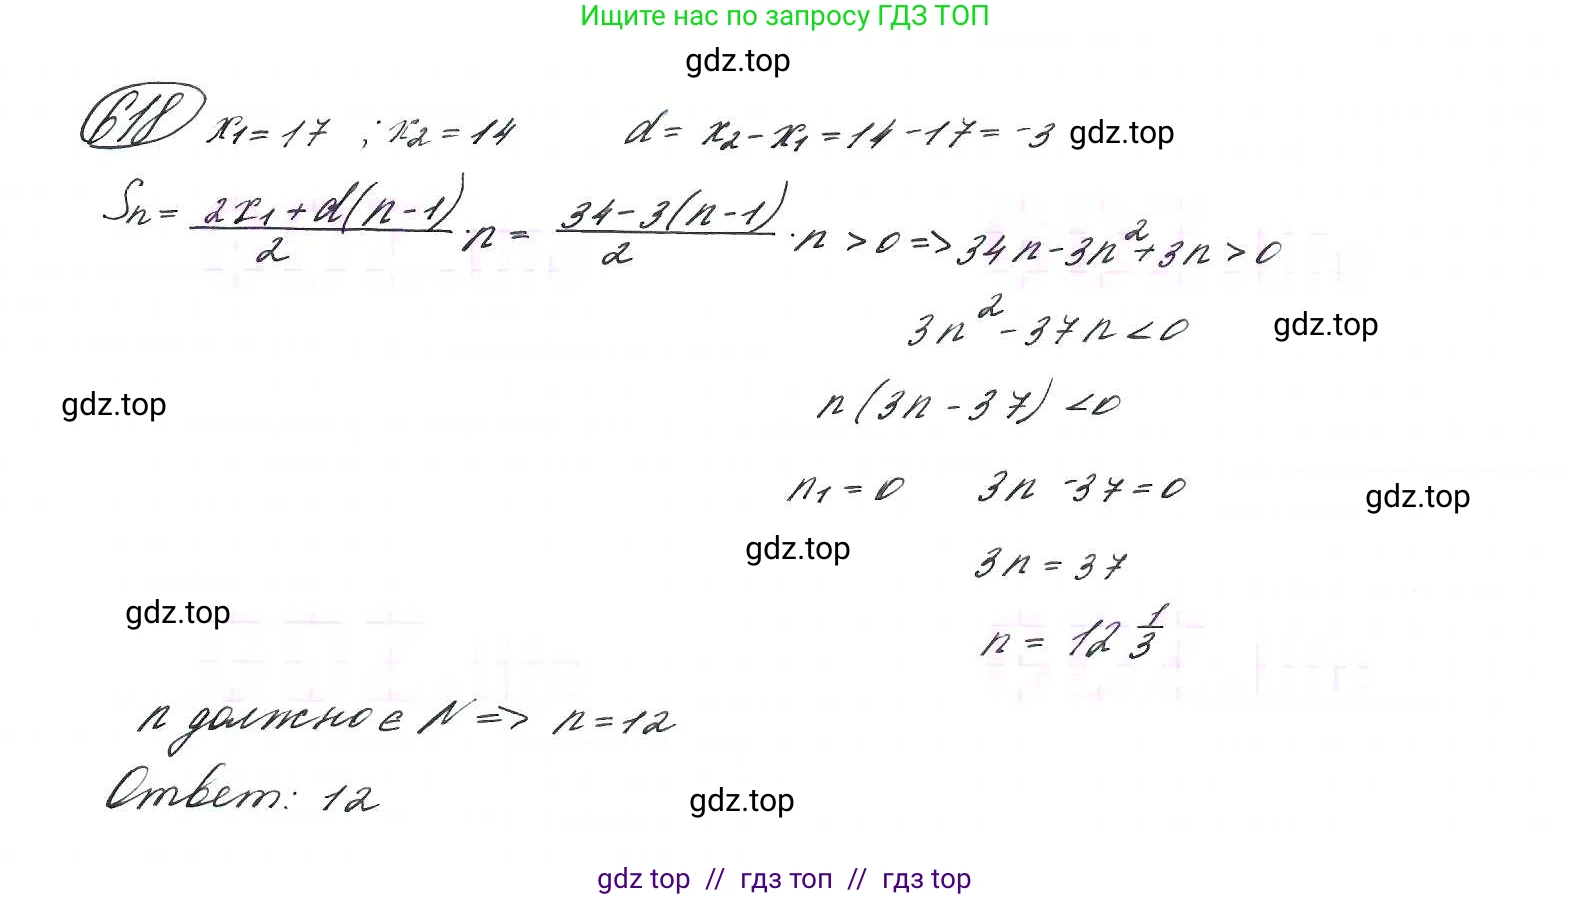 Ищите нас по запросу ГДЗ ТОП
gdz.top
618 x₁ = 17 ; x₂ = 14 d = x₂ - x₁ = 14 - 17 = -3 gdz.top
Sₙ = (2x₁ + d(n-1))/2 · n = (34 - 3(n-1))/2 · n > 0 => 34n - 3n² + 3n > 0
3n² - 37n < 0 gdz.top
gdz.top n(3n - 37) < 0
n₁ = 0 3n - 37 = 0 gdz.top
gdz.top 3n = 37
gdz.top n = 12 1/3
n должно ∈ N => n = 12
Ответ: 12 gdz.top
gdz top // гдз топ // гдз top